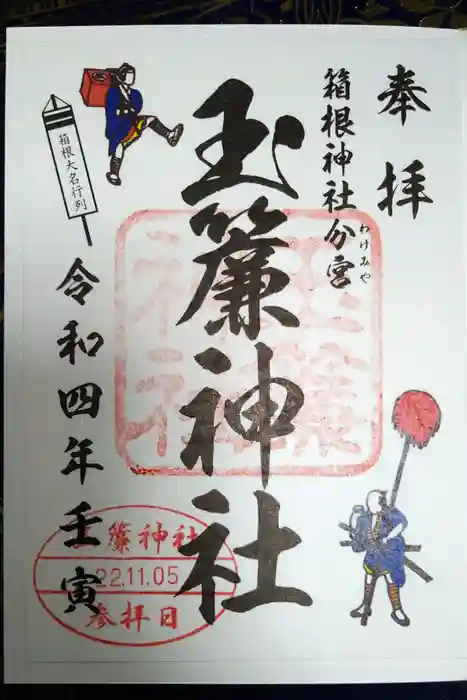 奉拝
箱根神社分宮
わけみや
玉簾神社
箱根大名行列
令和四年壬寅
簾神社
22.11.05
参拝日